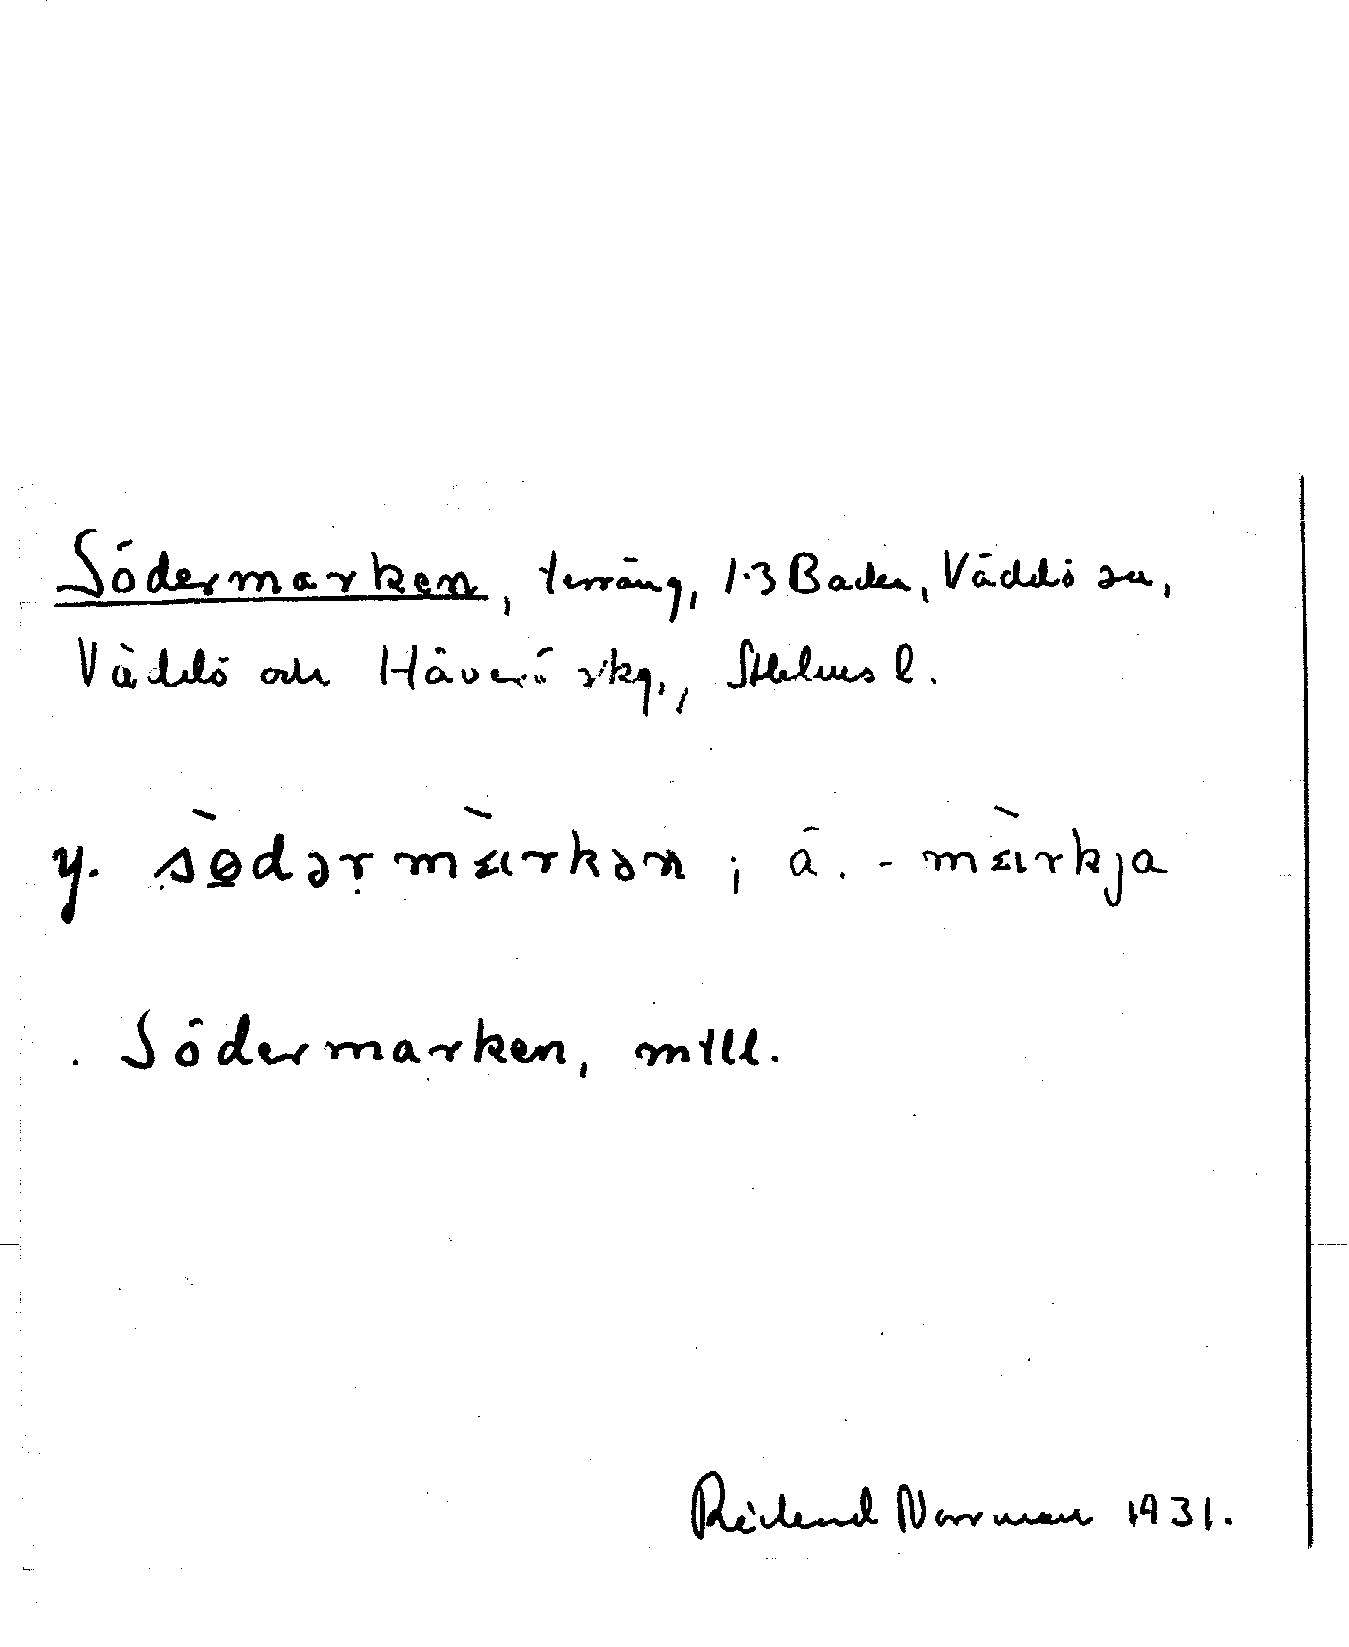 Södermarken, terräng, 1-3 Baden, Väddö sn,
Väddö och Häverö skg., Sthlms l.
y. sø̀dərmàrkən; ä. -màrkja
. Södermarken, mtll.
Reidend Norrman 1931.